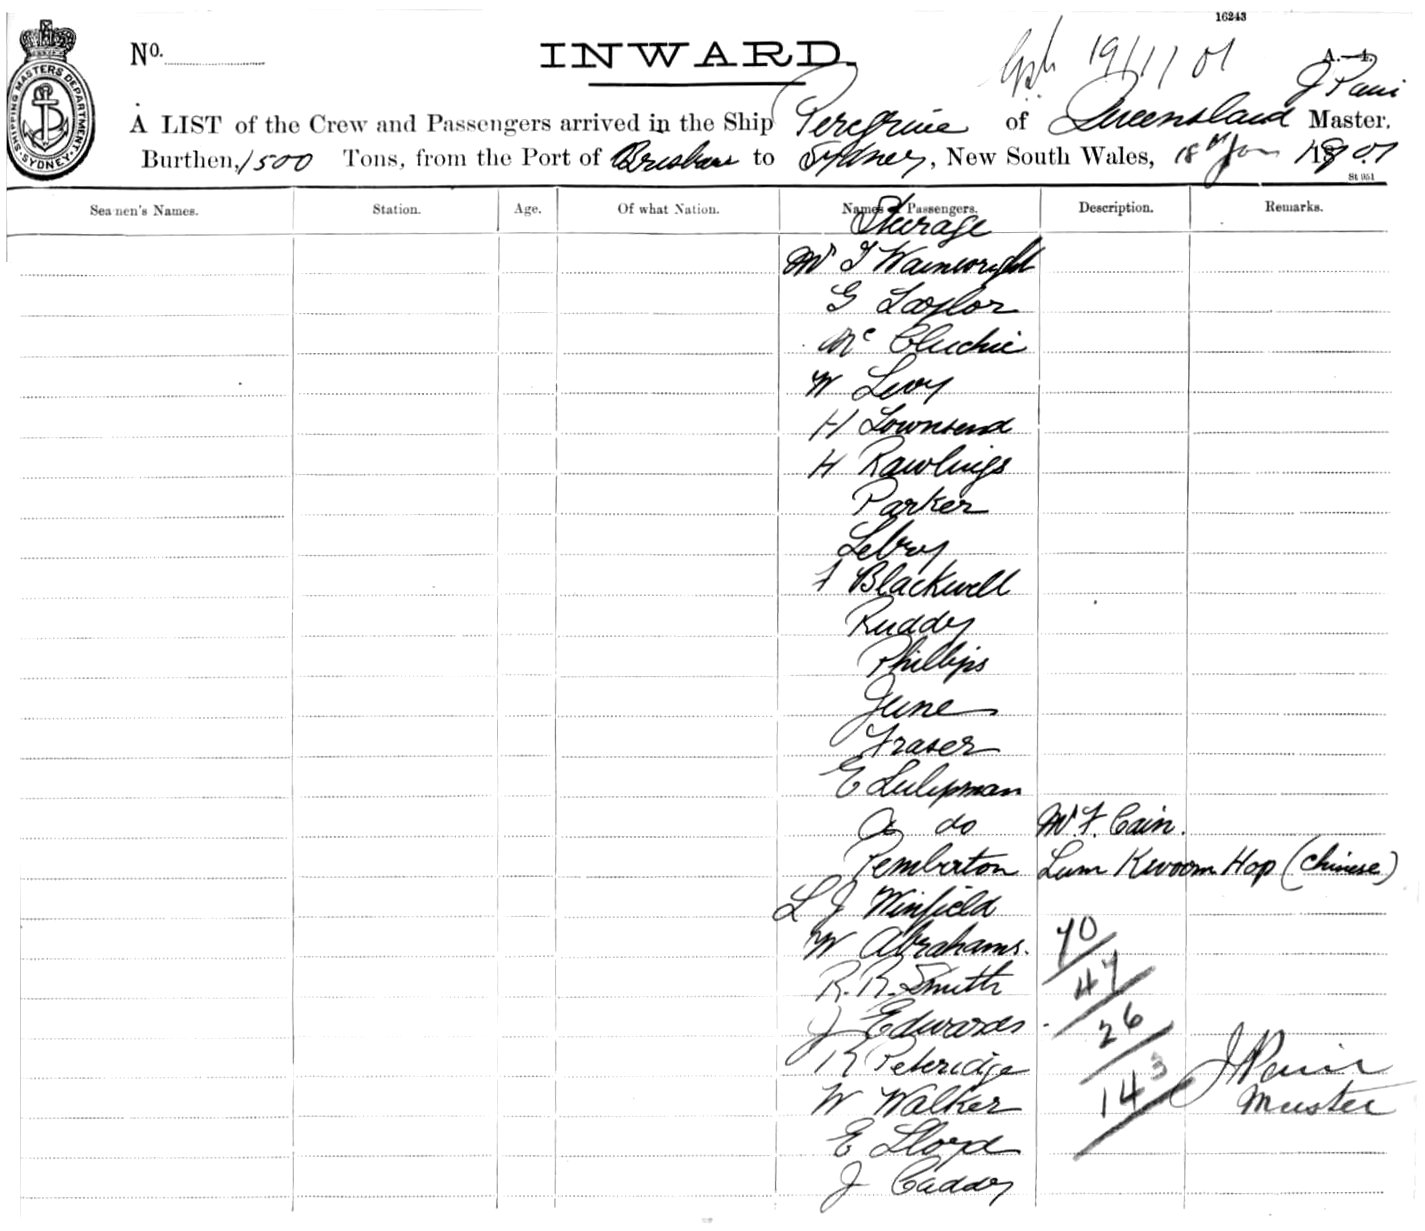 16243
No.
INWARD.
19/1/01
A.—4.
SHIPPING MASTERS DEPARTMENT. SYDNEY.
J Pain
A LIST of the Crew and Passengers arrived in the Ship Peregrine of Queensland Master,
Burthen, 1500 Tons, from the Port of Brisbane to Sydney, New South Wales, 18th Jan 1901
St 951
Seamen's Names. Station. Age. Of what Nation. Names of Passengers. Description. Remarks.
Steerage
Mr T Wainwright
G Taylor
McCluchie
W Levy
H Townsend
H Rawlings
Parker
Lebroy
F Blackwell
Ruddy
Phillips
June
Fraser
E Lulipman
do Mr F. Cain.
Pemberton Lum Kwoom Hop (Chinese)
L J Winfield
W Abrahams.
R. R. Smith
J Edwards
R Peteridge
W Walker
E Lloyd
J Caddy
70
47
26
143
J Pain
Master